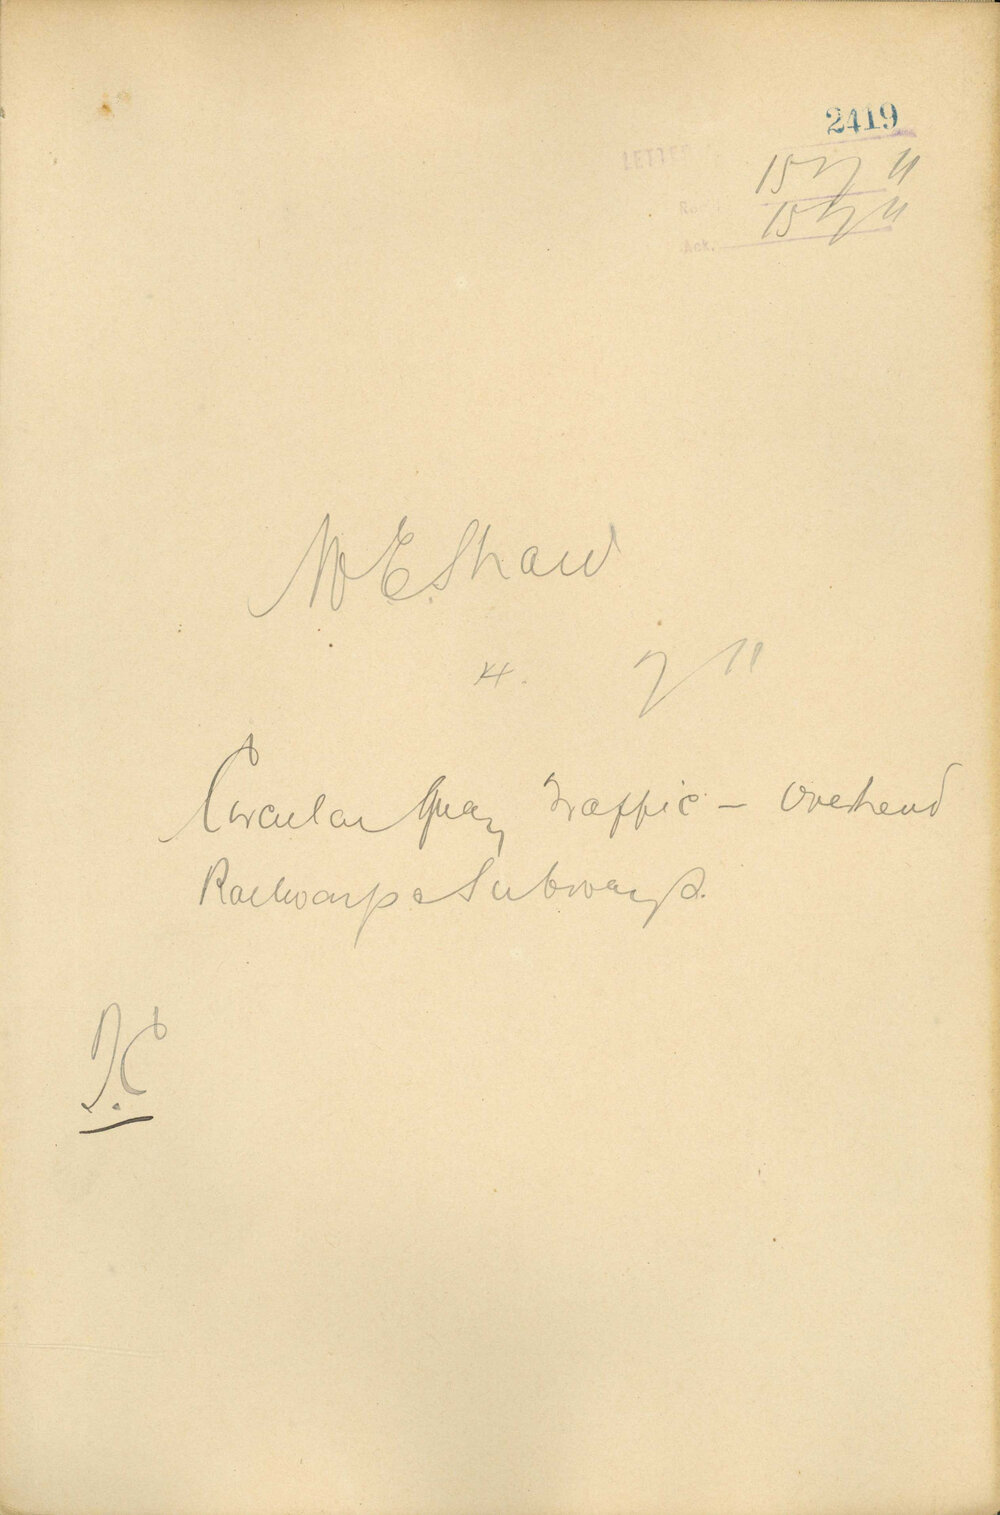 2419
LETTER
15 7 11
Rec.
15 7 11
Ack.
W E Shaw
4. 7 11
Circular Quay Traffic — Overhead
Railways & Subways.